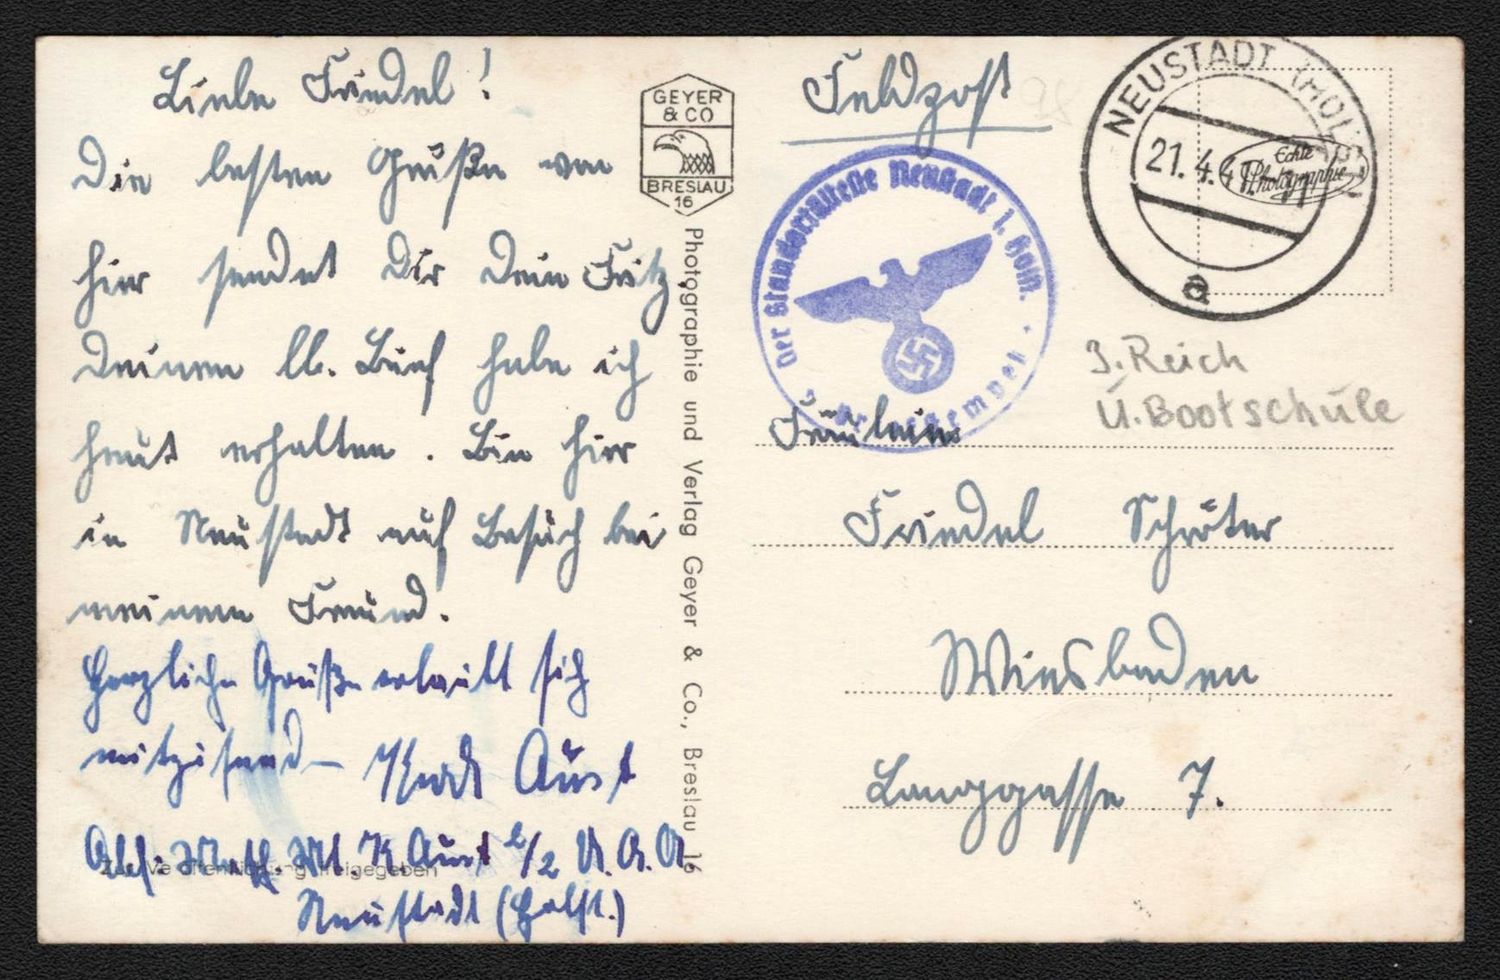 Liebe Friedel!
Die besten Grüße von
hier sendet Dir Dein Fritz.
Deinen lb. Brief habe ich
heut erhalten. Bin hier
in Neustadt auf Besuch bei
meinem Freund.
Herzliche Grüße erlaubt sich
mitzusend-
Aust
Abs: Matr. Aust 2/2 U.A.A.
Neustadt (Holst.)
Zur Veröffentlichung freigegeben
GEYER
& CO
BRESLAU
16
Photographie und Verlag Geyer & Co., Breslau 16
Feldpost
Der Standortälteste Neustadt i. Holst.
NEUSTADT (HOLST)
21.4.41
a
Echte
Photographie
3. Reich
U. Bootschule
Fräulein
Friedel Schröter
Wiesbaden
Langgasse 7.